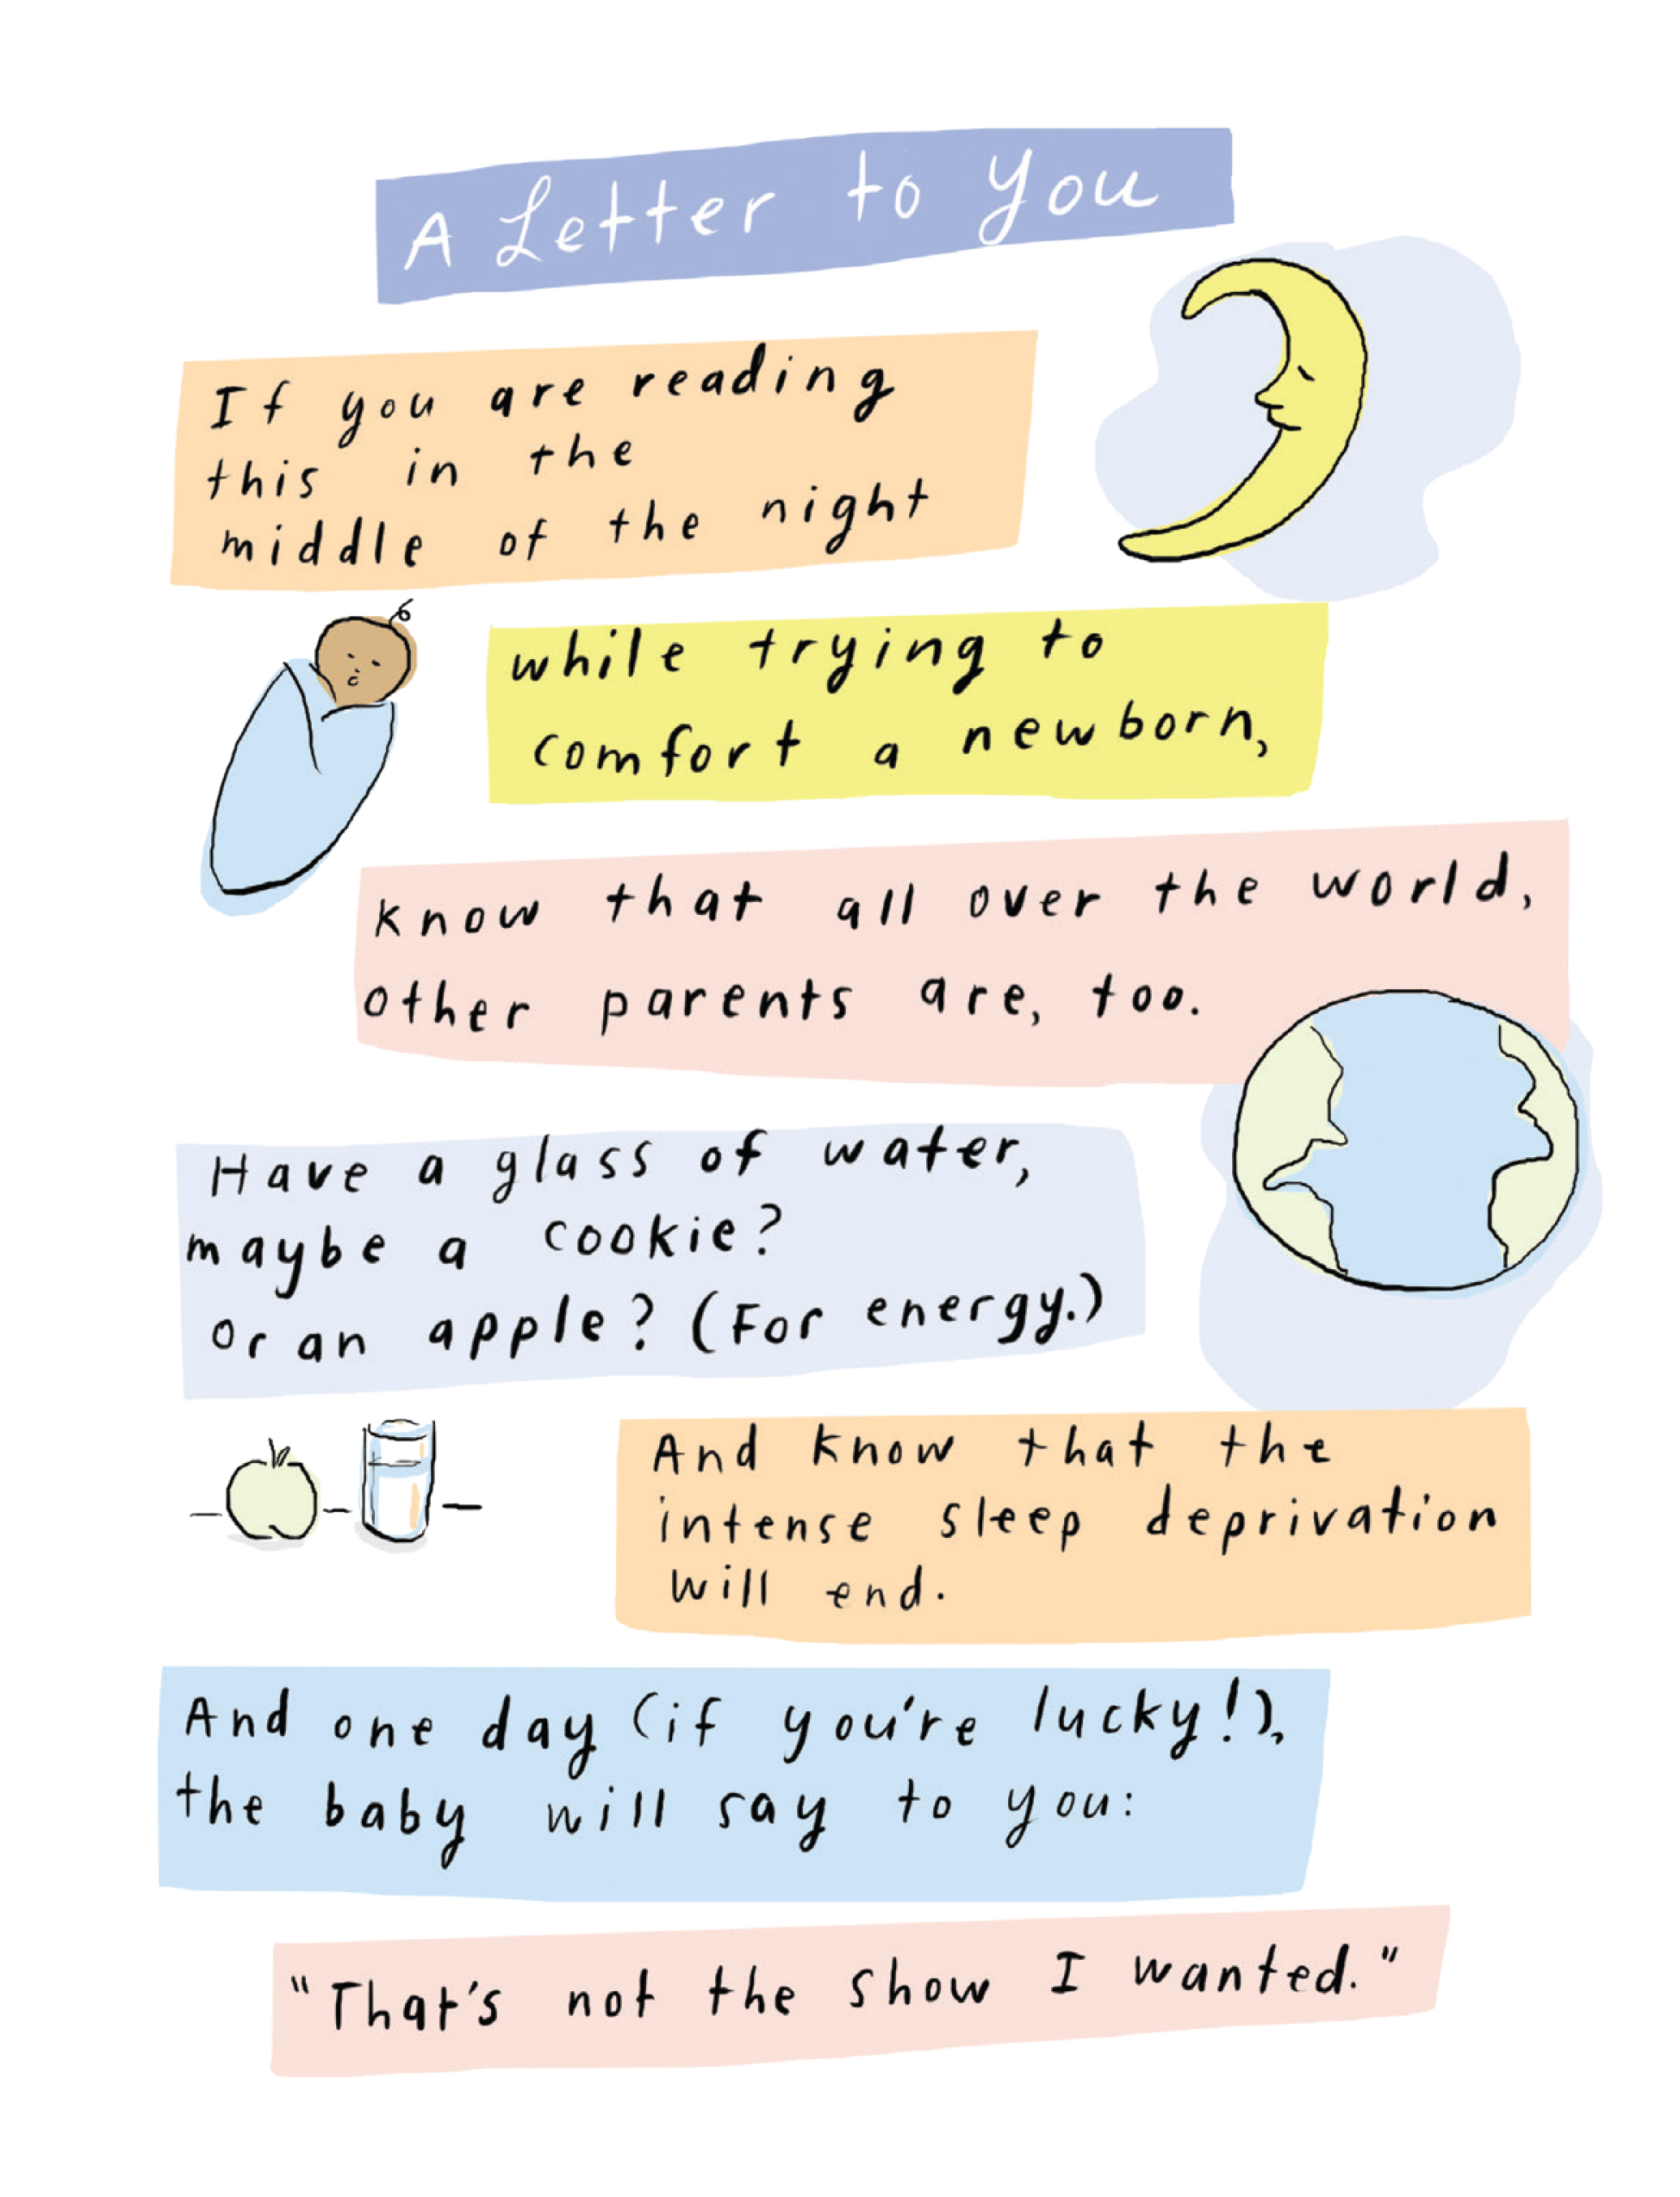 A Letter to You
If you are reading
this in the
middle of the night
while trying to
comfort a newborn,
know that all over the world,
other parents are, too.
Have a glass of water,
maybe a cookie?
or an apple? (For energy.)
And know that the
intense sleep deprivation
will end.
And one day (if you're lucky!),
the baby will say to you:
"That's not the show I wanted."